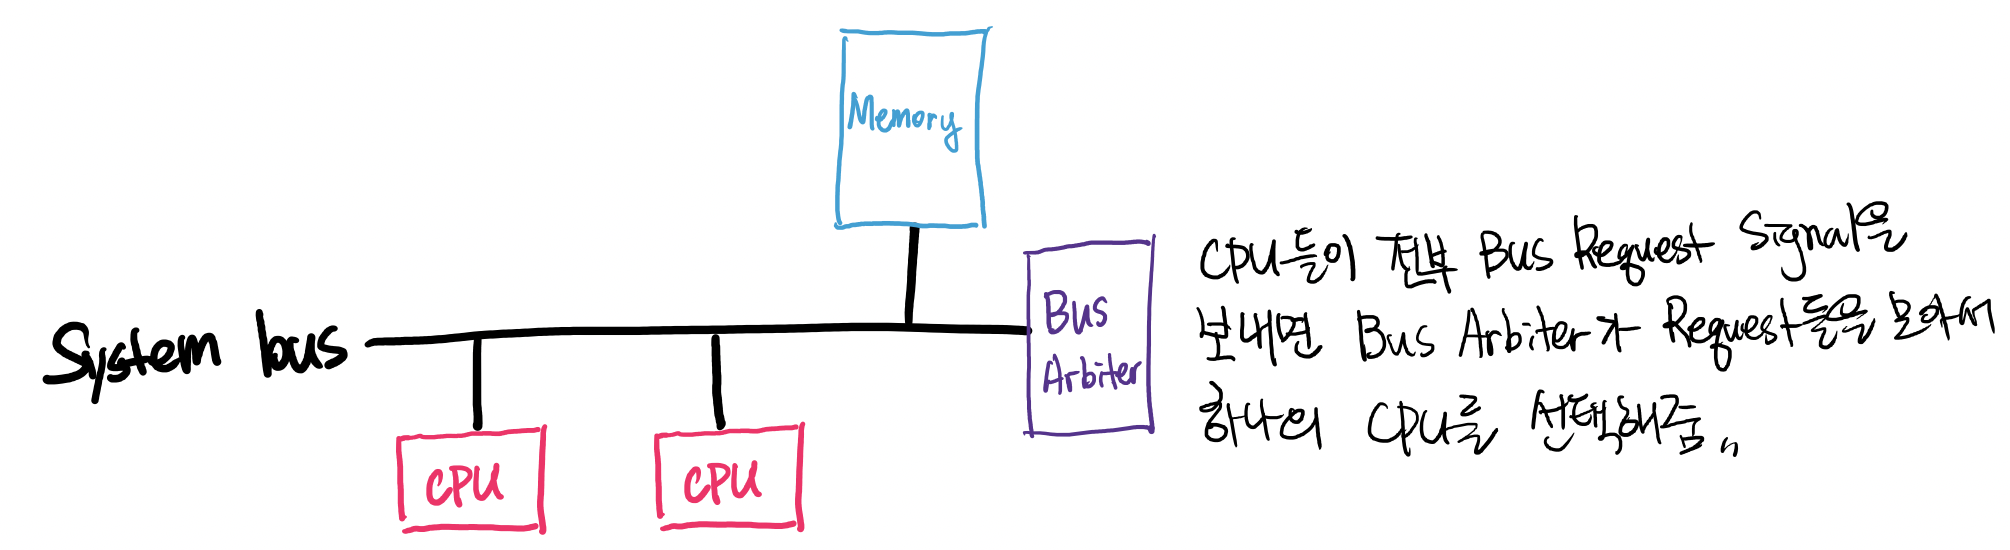 Memory
System bus
Bus
Arbiter
CPU
CPU
CPU들이 전부 Bus Request Signal을
보내면 Bus Arbiter가 Request들을 모아서
하나의 CPU를 선택해줌,,